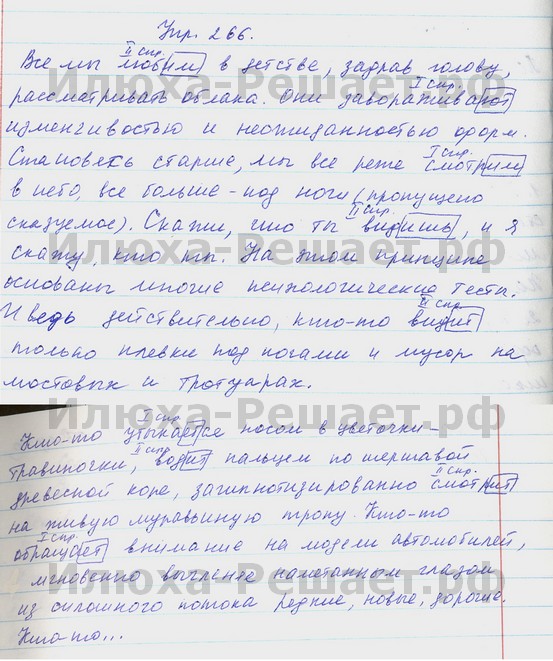 Упр. 266.
II спр.
Все мы любим в детстве, задрав голову,
I спр.
рассматривать облака. Они завораживают
изменчивостью и неожиданностью форм.
I спр.
Становясь старше, мы все реже смотрим
в небо, все больше - под ноги (пропущено
II спр.
сказуемое). Скажи, что ты видишь, и я
скажу, кто ты. На этом принципе
основаны многие психологические тесты.
II спр.
И ведь действительно, кто-то видит
только плевки под ногами и мусор на
мостовых и тротуарах.
I спр.
Кто-то утыкается носом в цветочки-
II спр.
травиночки, водит пальцем по шершавой
II спр.
древесной коре, загипнотизированно смотрит
на живую муравьиную тропу. Кто-то
I спр.
обращает внимание на модели автомобилей,
мгновенно вычленяе наметанным глазом
из сплошного потока редкие, новые, дорогие.
Кто-то...
Илюха-Решает.рф
Илюха-Решает.рф
Илюха-Решает.рф
Илюха-Решает.рф